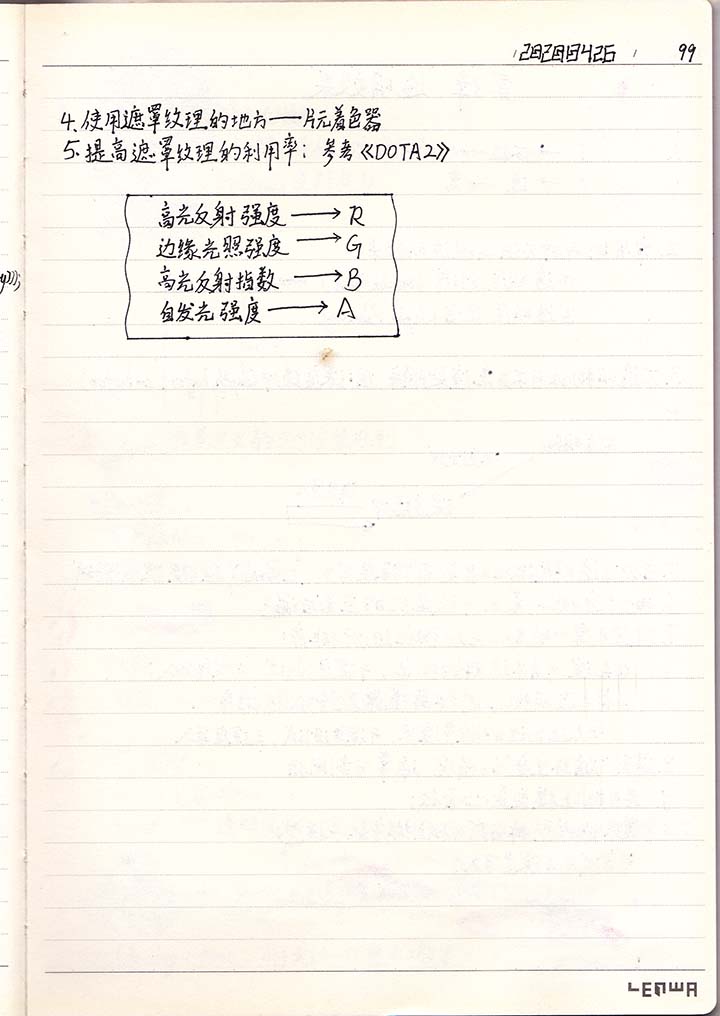 20200426 99
4.使用遮罩纹理的地方——片元着色器
5.提高遮罩纹理的利用率：参考《DOTA2》
高光反射强度 → R
边缘光照强度 → G
高光反射指数 → B
自发光强度 → A
y)));